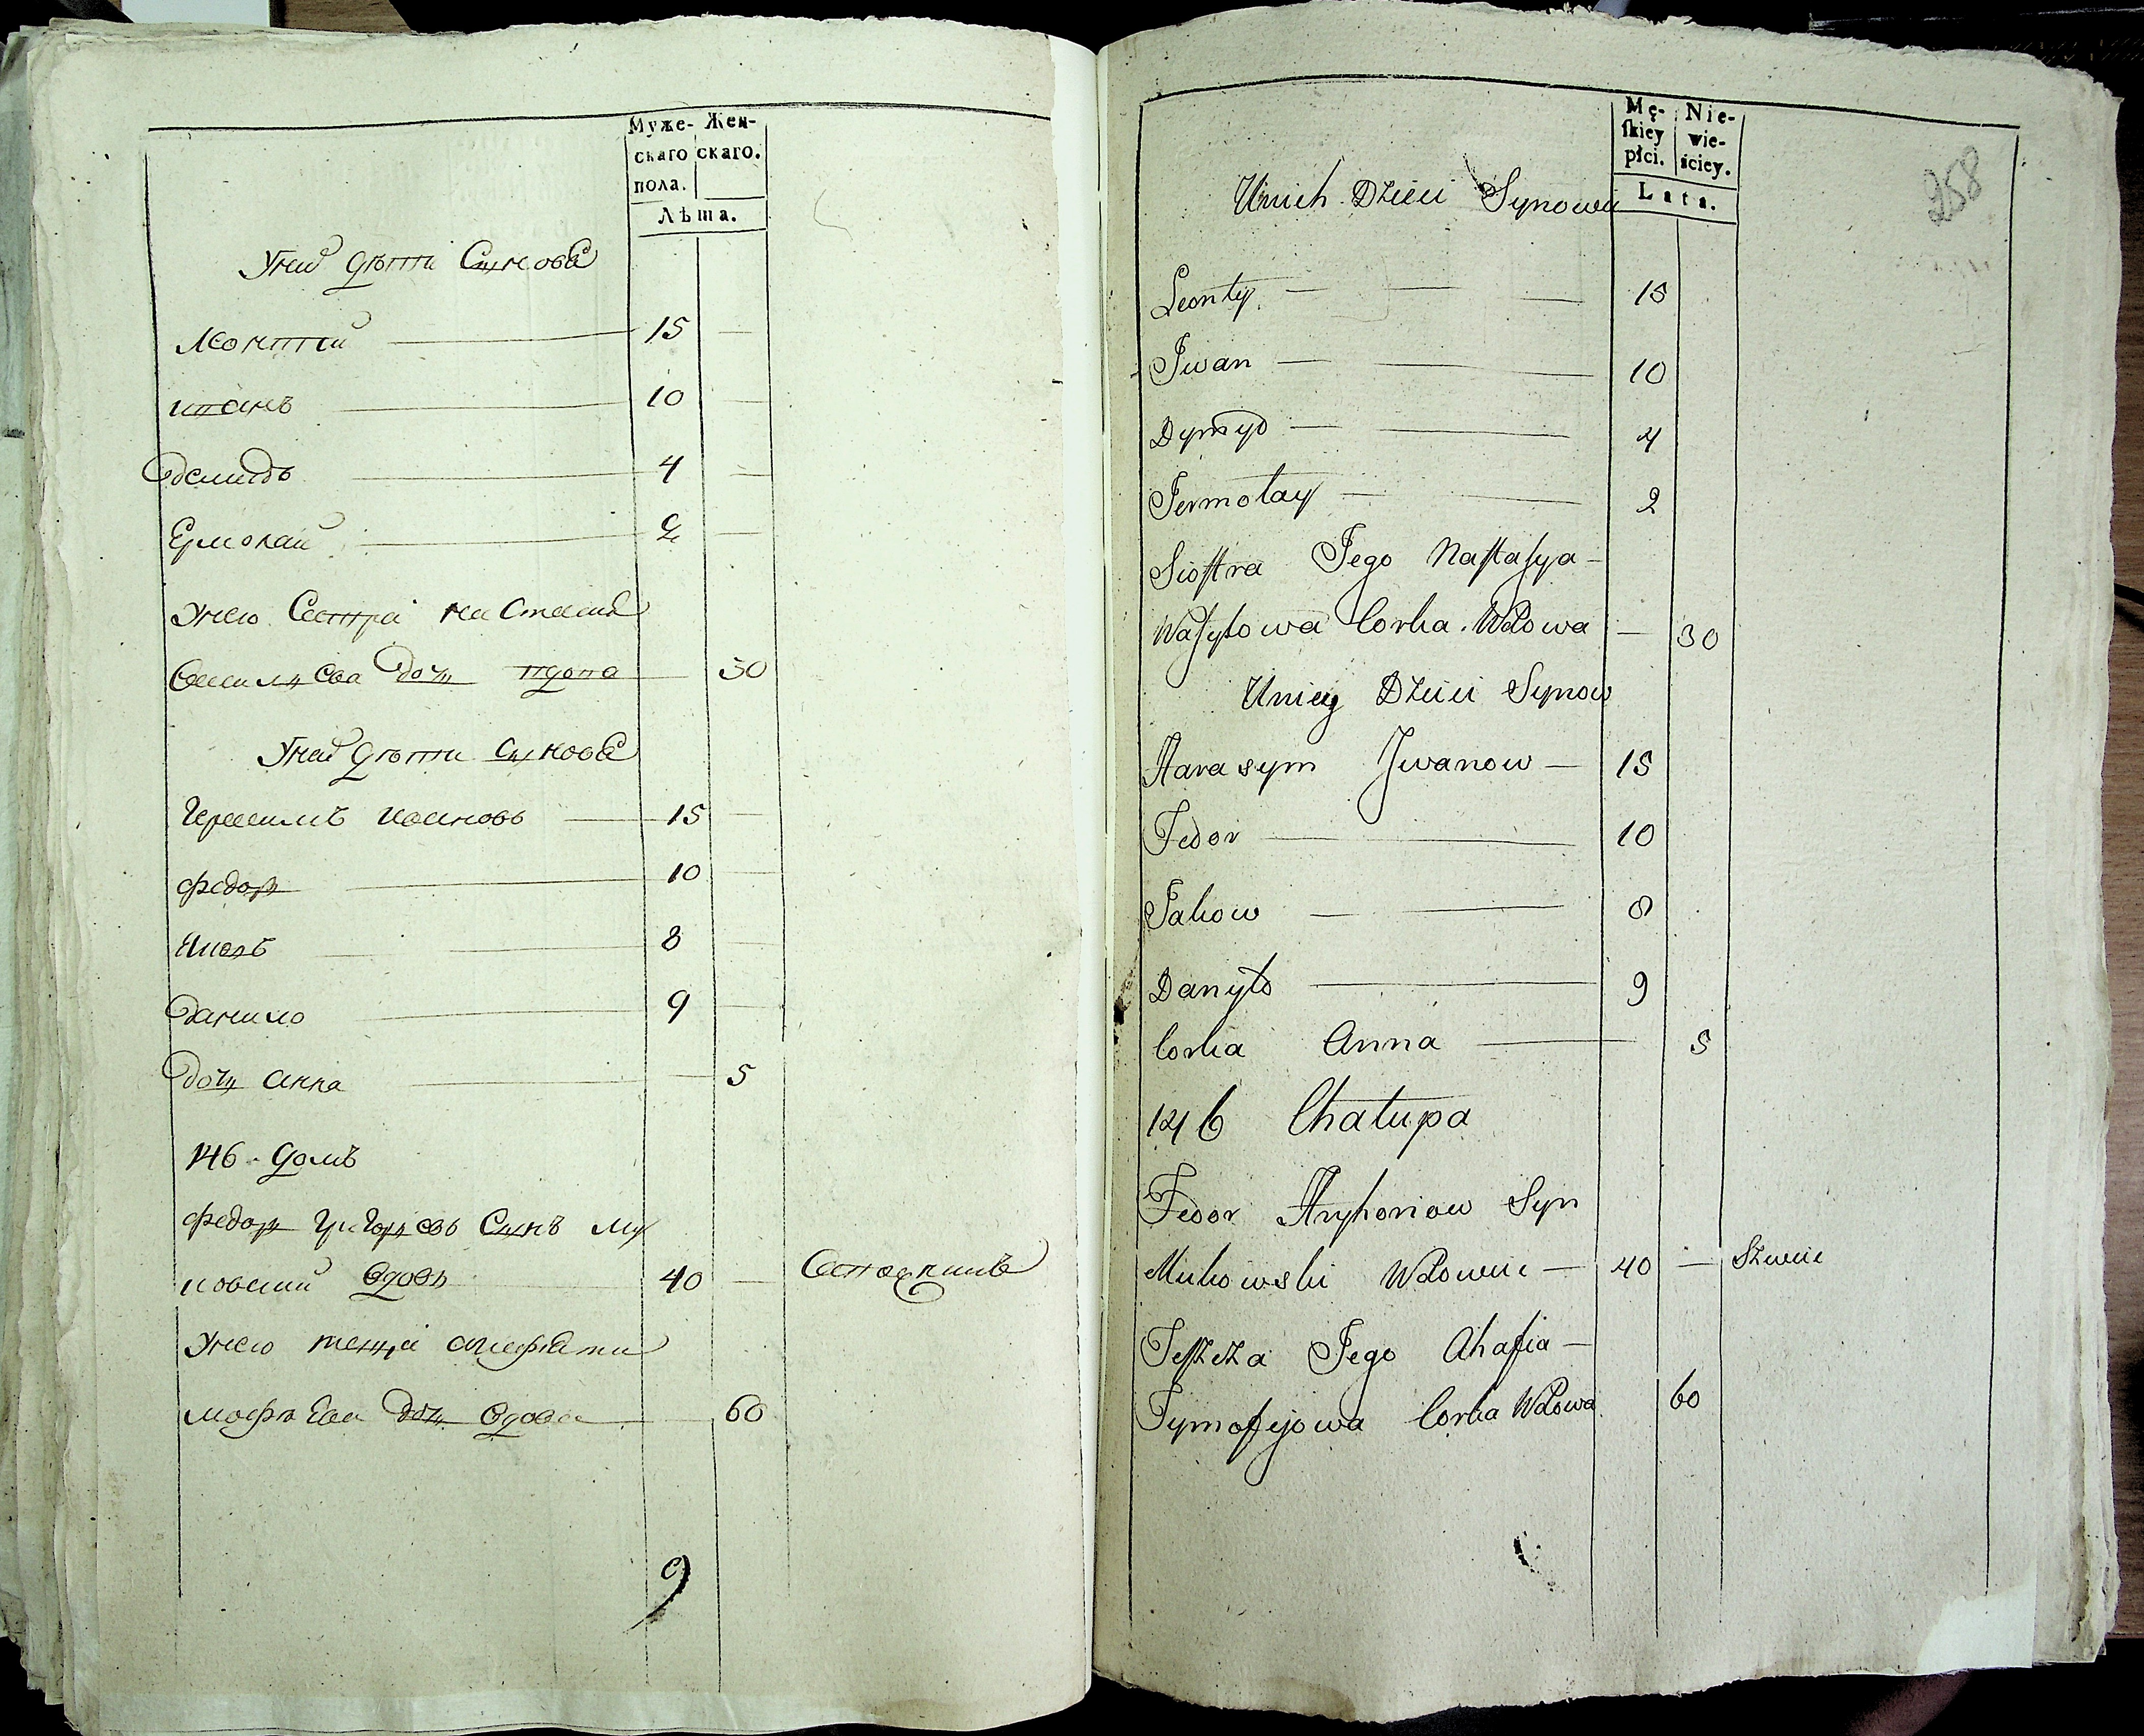 Муже- Жен-
скаго скаго.
пола.
Лѣта.
Унихъ дѣти Синове
Леонтий 15 —
иванъ 10 —
Демидъ 4 —
Ермолай 2 —
Унего Сестра настасия
Василиева дочь вдова 30
Уней дѣти синове
Герасимъ ивановъ 15 —
федоръ 10 —
Яковъ 8 —
Данило 9 —
дочь анна — 5
146 домъ
федоръ григориевъ Синъ Му
ковский вдовъ 40 —
Унего теща агафия ти
мофѣева дочь вдова 60
9
Mę- Nie-
ſkiey wie-
płci. ściey.
Lata.
258
Unich Dzieci Synowie
Leonty — — — 15
Iwan — — 10
Dymyd — — 4
Jermołay — — 2
Sioſtra Jego Naſtaſya —
Waſyłowa Corka Wdowa — 30
Uniey Dzieci Synow
Harasym Iwanow — 15
Fedor — 10
Jakow — — 8
Danyło — 9
Corka Anna — 5
146 Chałupa
Fedor Hryhoriow Syn
Mukowski Wdowiec — 40 — Szewiec
Teſzcza Jego Ahafia —
Tymofejowa Corka Wdowa 60